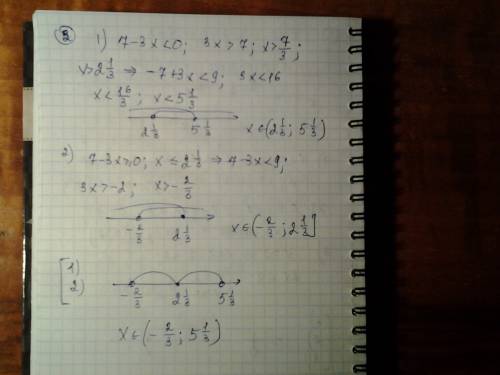 3) 1) 7-3x<0; 3x>7; x>7/3;
x>2 1/3 ⇒ -7+3x<9; 3x<16
x<16/3; x<5 1/3
2 1/3 5 1/3 x∈(2 1/3; 5 1/3)
2) 7-3x≥0; x≤2 1/3 ⇒ 7-3x<9;
3x>-2; x>-2/3
-2/3 2 1/3 x∈(-2/3; 2 1/3]
[ 1)
2) -2/3 2 1/3 5 1/3
x∈(-2/3; 5 1/3)